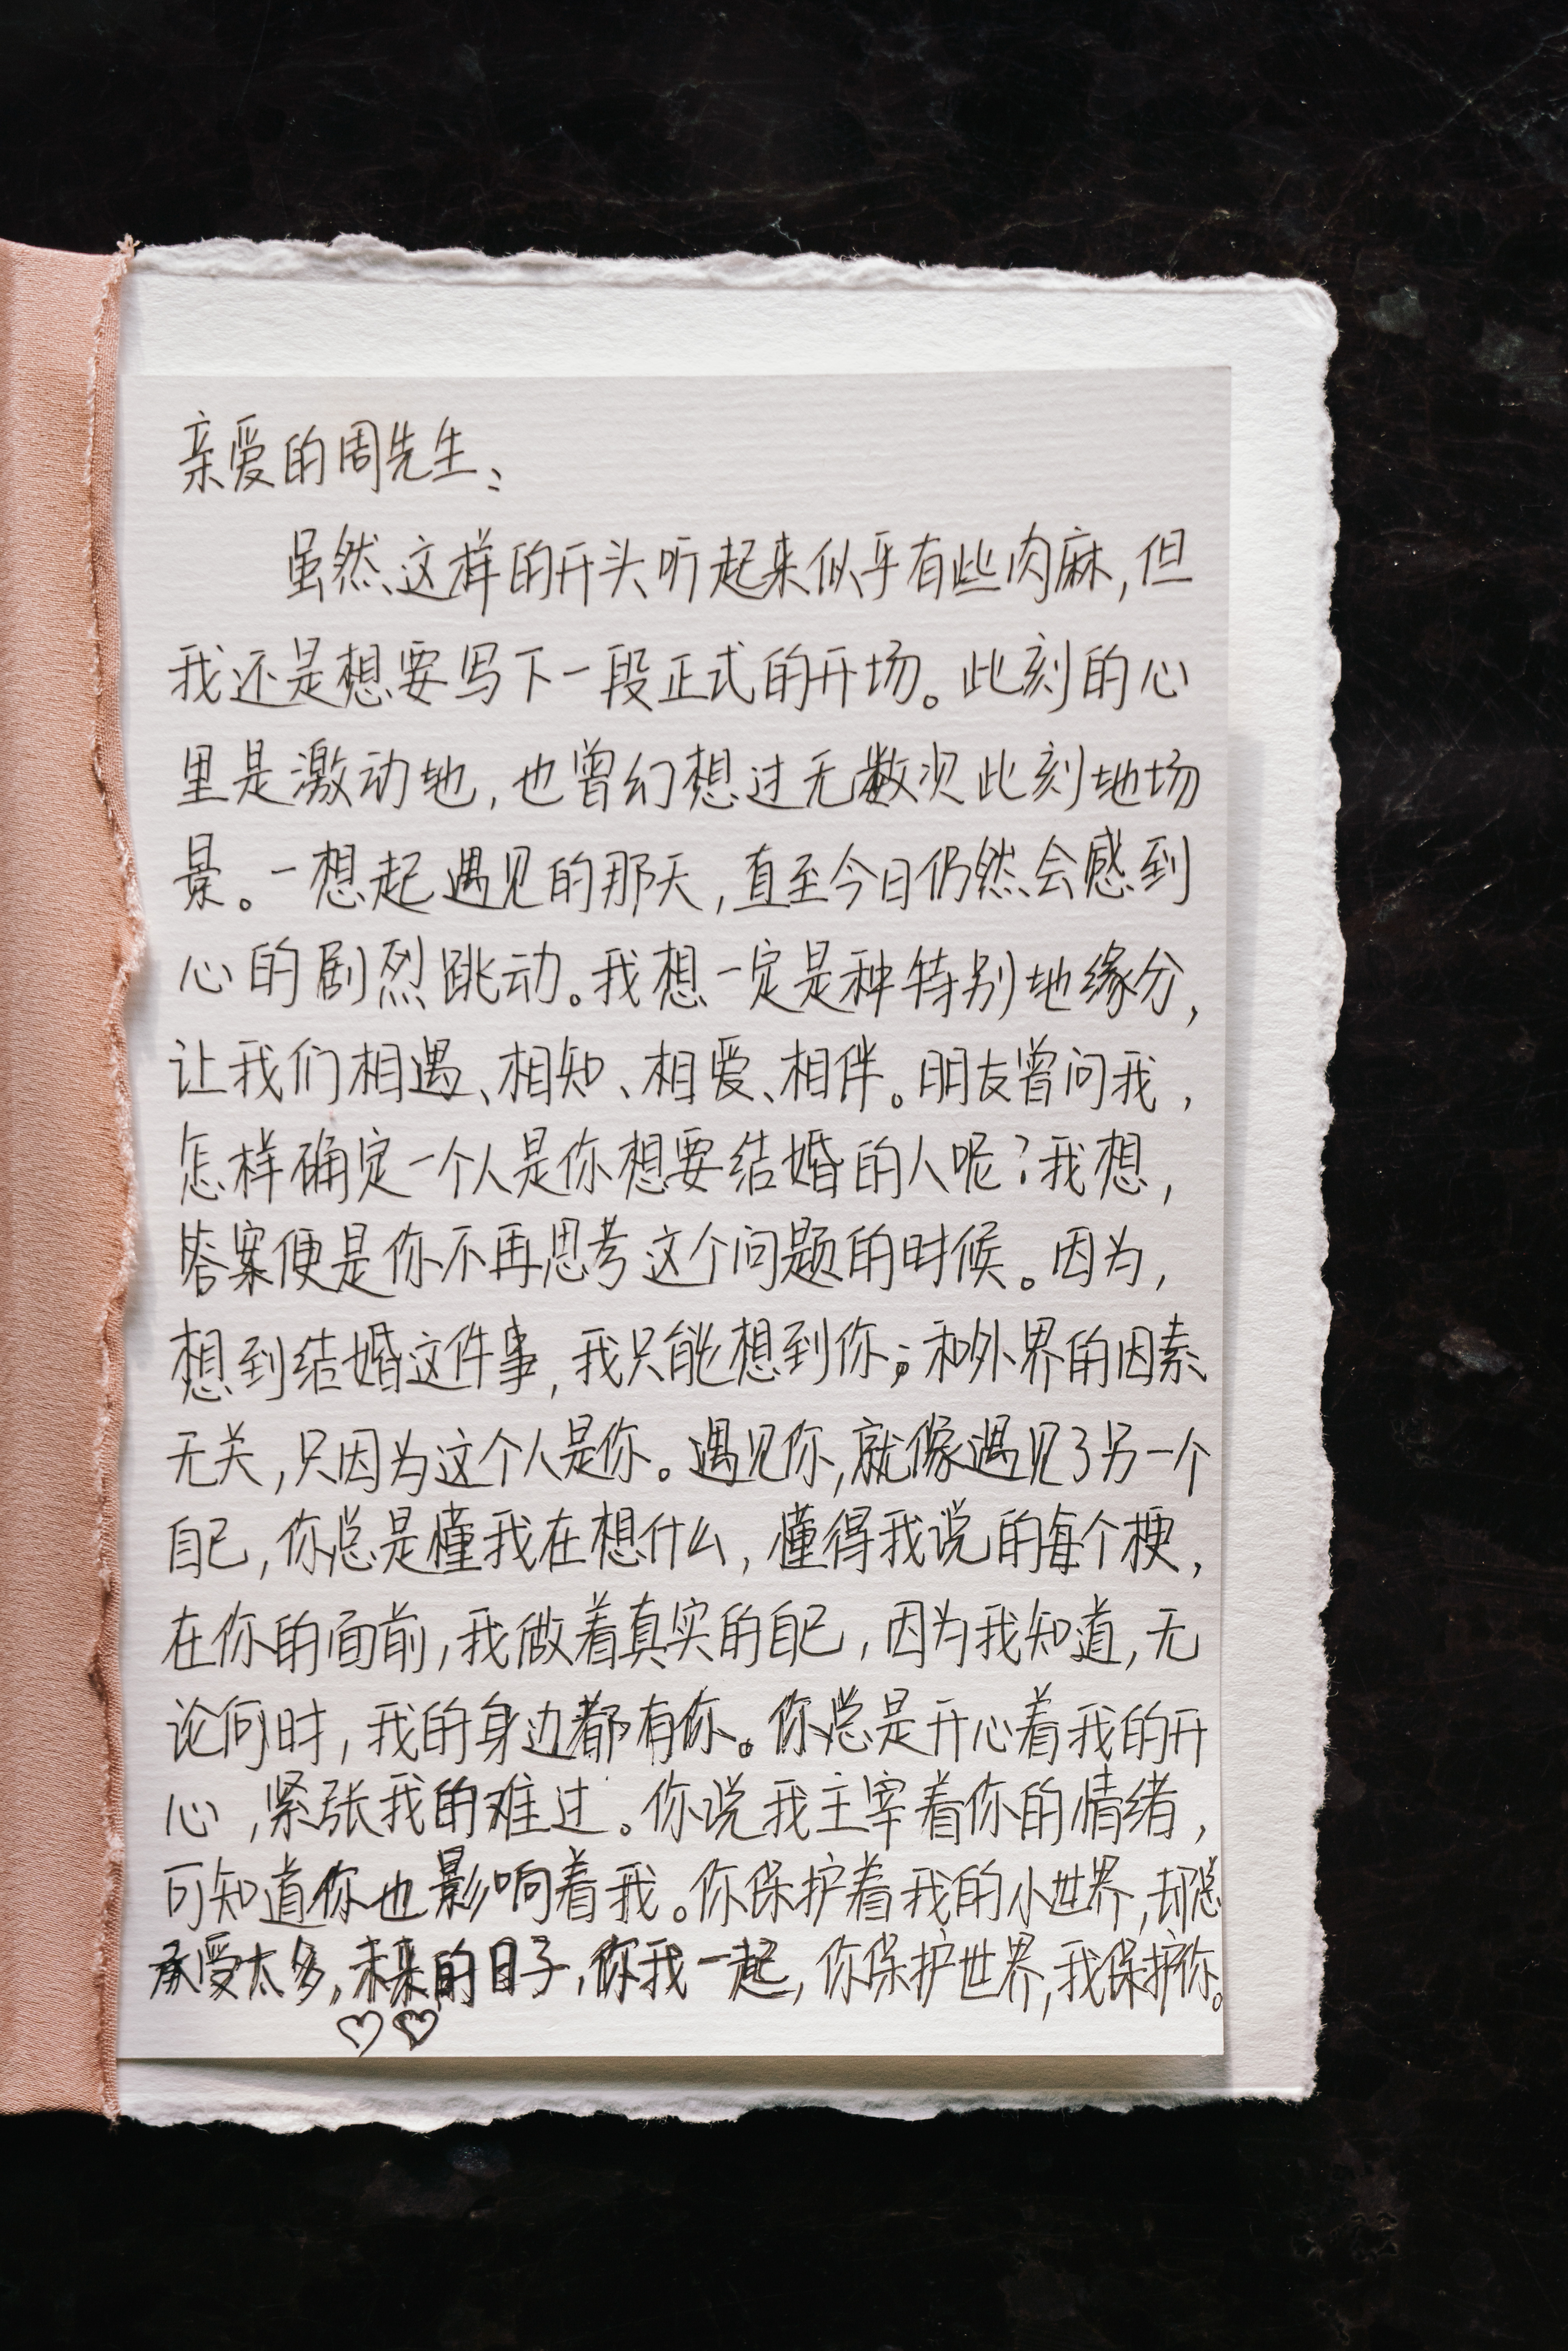 亲爱的周先生：
虽然这样的开头听起来似乎有些肉麻，但
我还是想要写下一段正式的开场。此刻的心
里是激动地，也曾幻想过无数次此刻地场
景。一想起遇见的那天，直至今日仍然会感到
心的剧烈跳动。我想一定是种特别地缘分，
让我们相遇、相知、相爱、相伴。朋友曾问我，
怎样确定一个人是你想要结婚的人呢？我想，
答案便是你不再思考这个问题的时候。因为，
想到结婚这件事，我只能想到你；和外界的因素
无关，只因为这个人是你。遇见你，就像遇见了另一个
自己，你总是懂我在想什么，懂得我说的每个梗，
在你的面前，我做着真实的自己，因为我知道，无
论何时，我的身边都有你。你总是开心着我的开
心，紧张我的难过。你说我主宰着你的情绪，
可知道你也影响着我。你保护着我的小世界，却总
承受太多，未来的日子，你我一起，你保护世界，我保护你。